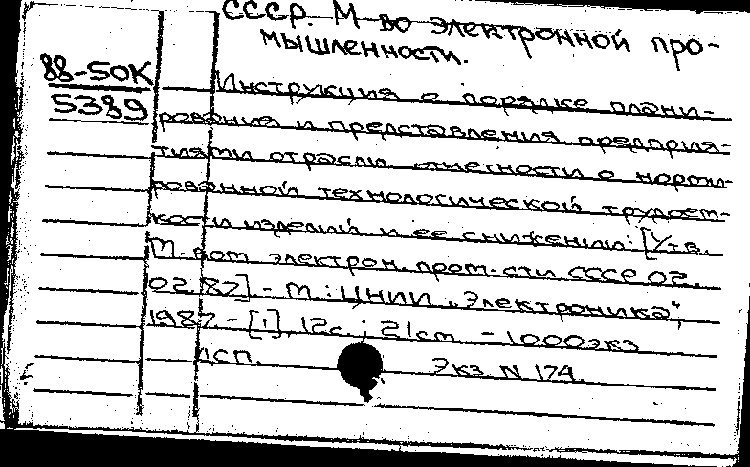 СССР. М-во электронной про-
мышленности.
88-50К
5389
Инструкция о порядке плани-
рования и представления предприя-
тиями отрасли отчетности о норми-
рованной технологической трудоем-
кости изделий и ее снижении: [Утв.
М-вом электрон. пром-сти СССР 02.
02.87]. - М.: ЦНИИ „Электроника",
1987. - [1], 12с.; 21см - 1000экз
ДСП. Экз. N 174.